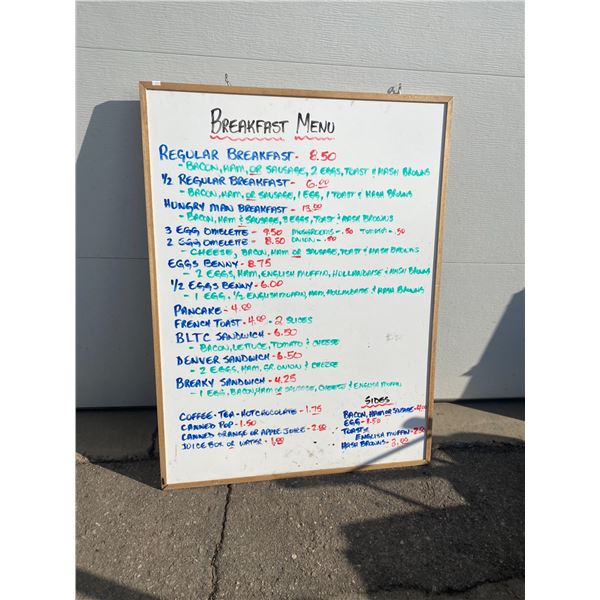 BREAKFAST MENU
REGULAR BREAKFAST - 8.50
- BACON, HAM, OR SAUSAGE, 2 EGGS, TOAST & HASH BROWNS
1/2 REGULAR BREAKFAST - 6.00
- BACON, HAM, OR SAUSAGE, 1 EGG, 1 TOAST & HASH BROWNS
HUNGRY MAN BREAKFAST - 13.00
- BACON, HAM & SAUSAGE, 3 EGGS, TOAST & HASH BROWNS
3 EGG OMELETTE - 9.50 MUSHROOMS - .50 TOMATO - .50
2 EGG OMELETTE - 8.50 ONION - .50
- CHEESE, BACON, HAM OR SAUSAGE, TOAST & HASH BROWNS
EGGS BENNY - 8.75
- 2 EGGS, HAM, ENGLISH MUFFIN, HOLLANDAISE & HASH BROWNS
1/2 EGGS BENNY - 6.00
- 1 EGG, 1/2 ENGLISH MUFFIN, HAM, HOLLANDAISE & HASH BROWNS
PANCAKE - 4.00
FRENCH TOAST - 4.00 - 2 SLICES
BLTC SANDWICH - 6.50
- BACON, LETTUCE, TOMATO & CHEESE
DENVER SANDWICH - 6.50
- 2 EGGS, HAM, GR. ONION & CHEESE
BREAKY SANDWICH - 4.25
- 1 EGG, BACON, HAM OR SAUSAGE, CHEESE & ENGLISH MUFFIN
COFFEE - TEA - HOT CHOCOLATE - 1.75
CANNED POP - 1.50
CANNED ORANGE OR APPLE JUICE - 2.50
JUICE BOX OR WATER - 1.00
SIDES
BACON, HAM OR SAUSAGE - 4.00
EGG - 1.50
TOAST OR
ENGLISH MUFFIN -
HASH BROWNS - 3.00